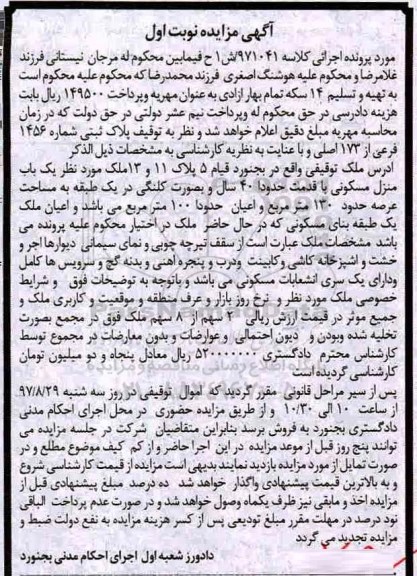 آگهی مزایده نوبت اول
مورد پرونده اجرائی کلاسه ۹۷۱۰۴۱/ش۱ ح فیمابین محکوم له مرجان نیستانی فرزند
غلامرضا و محکوم علیه هوشنگ اصغری فرزند محمدرضا که محکوم علیه محکوم است
به تهیه و تسلیم ۱۴ سکه تمام بهار ازادی به عنوان مهریه وپرداخت ۱۴۹۵۰۰ ریال بابت
هزینه دادرسی در حق محکوم له وپرداخت نیم عشر دولتی در حق دولت که در زمان
محاسبه مهریه مبلغ دقیق اعلام خواهد شد و نظر به توقیف پلاک ثبتی شماره ۱۴۵۶
فرعی از ۱۷۳ اصلی و با عنایت به نظریه کارشناسی به مشخصات ذیل الذکر
ادرس ملک توقیفی واقع در بجنورد قیام ۵ پلاک ۱۱ و ۱۳ملک مورد نظر یک باب
منزل مسکونی با قدمت حدودا ۴۰ سال و بصورت کلنگی در یک طبقه به مساحت
عرصه حدود ۱۳۰ متر مربع و اعیان حدودا ۱۰۰ متر مربع می باشد و اعیان ملک
یک طبقه بنای مسکونی که در حال حاضر ملک در اختیار محکوم علیه پرونده می
باشد مشخصات ملک عبارت است از سقف تیرچه چوبی و نمای سیمانی دیوارها اجر و
خشت و اشپزخانه کاشی و کابینت ودرب و پنجره آهنی و بدنه گچ و سرویس ها کامل
ودارای یک سری انشعابات مسکونی می باشد و باتوجه به توضیحات فوق و شرایط
خصوصی ملک مورد نظر و نرخ روز بازار و عرف منطقه و موقعیت و کاربری ملک و
جمیع موثر در قیمت ارزش ریالی ۲ سهم از ۸ سهم ملک فوق در مجمع بصورت
تخلیه شده وبودن و دیون احتمالی و عوارضات و بدون معارضات در مجموع توسط
کارشناس محترم دادگستری ۵۲۰۰۰۰۰۰۰ ریال معادل پنجاه و دو میلیون تومان
کارشناسی گردیده است
پس از سیر مراحل قانونی مقرر گردید که اموال توقیفی در روز سه شنبه ۹۷/۸/۲۹
از ساعت ۱۰ الی ۱۰/۳۰ و از طریق مزایده حضوری در محل اجرای احکام مدنی
دادگستری بجنورد به فروش برسد بنابراین متقاضیان شرکت در جلسه مزایده می
توانند پنج روز قبل از موعد مزایده در این اجرا حاضر و از کم کیف موضوع مطلع و در
صورت تمایل از مورد مزایده بازدید نمایند بدیهی است مزایده از قیمت کارشناسی شروع
و به بالاترین قیمت پیشنهادی واگذار خواهد شد ده درصد مبلغ پیشنهادی قبل از
مزایده اخذ و مابقی نیز ظرف یکماه وصول خواهد شد و در صورت عدم پرداخت الباقی
نود درصد در مهلت مقرر مبلغ تودیعی پس از کسر هزینه مزایده به نفع دولت ضبط و
مزایده تجدید می گردد
دادورز شعبه اول اجرای احکام مدنی بجنورد